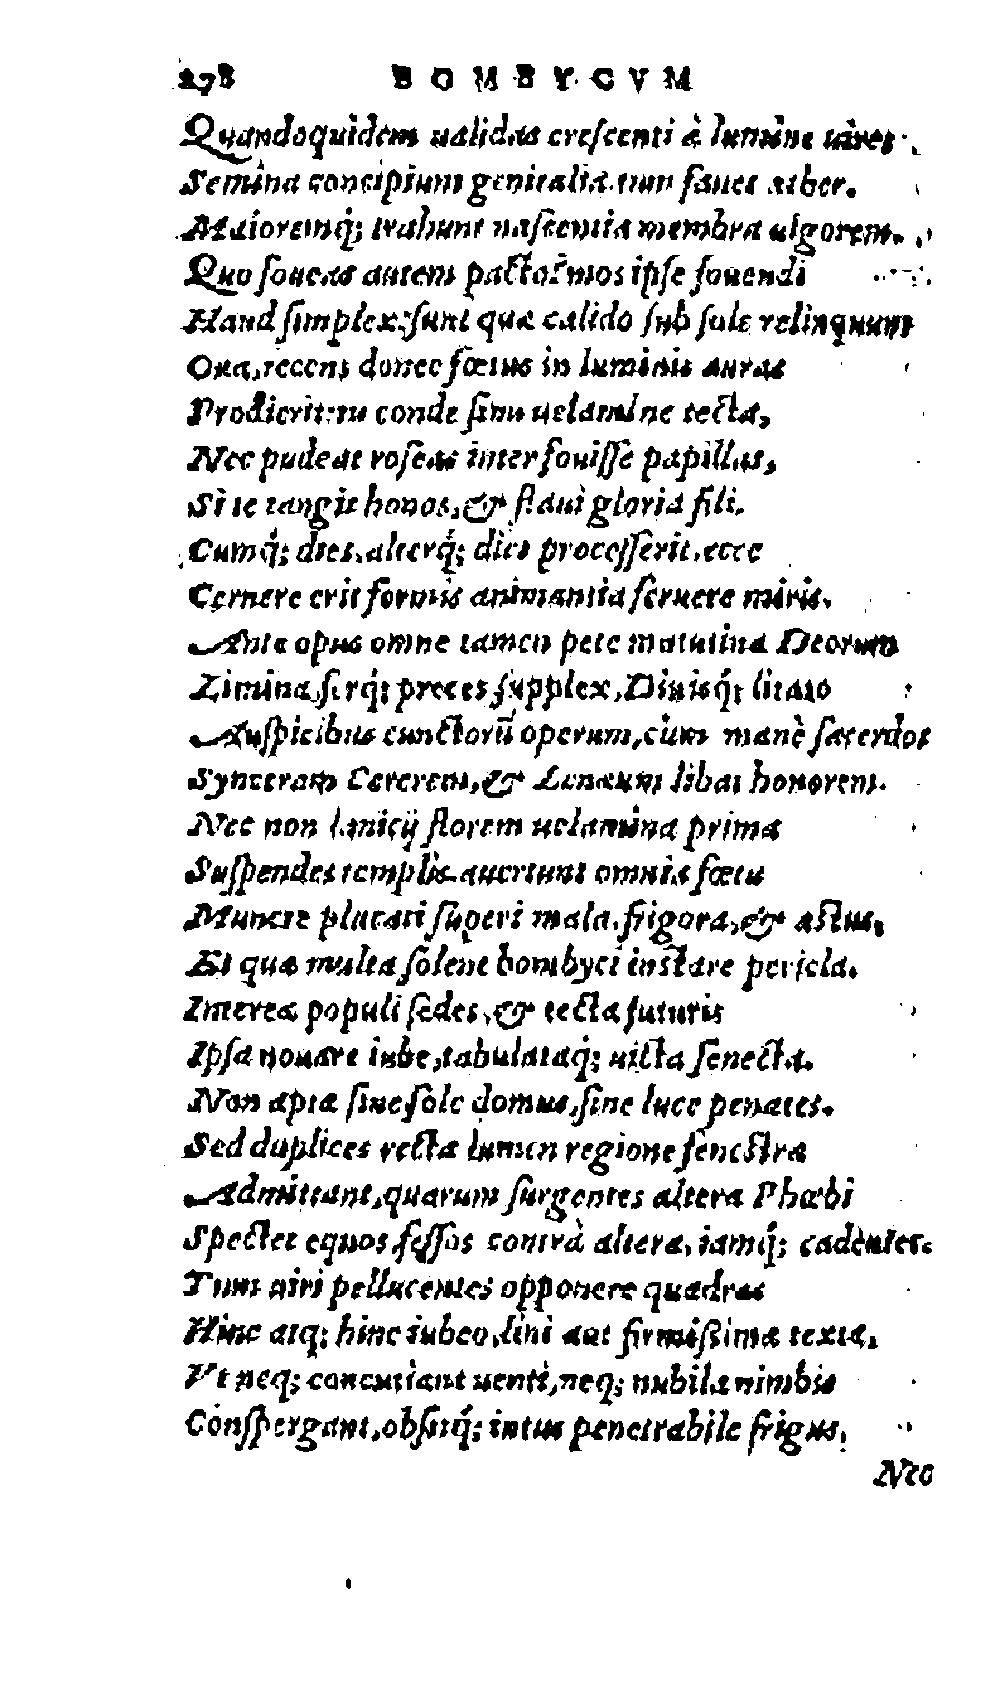 278 BOMBYCVM
Quandoquidem ualidas crescenti à lumine uires
Semina concipiunt genitalia. tum fauet æther.
Maioremq́; trahunt nascentia membra uigorem.
Quo foueas autem pacto? mos ipse fouendi
Haud simplex: sunt quæ calido sub sole relinquunt
Oua, recens donec fœtus in luminis auras
Prodierit: tu conde sinu uelamine tecta,
Nec pudeat roseas inter fouisse papillas,
Si te tangit honos, & flaui gloria fili.
Cumq́; dies, alterq́; dies processerit, ecce
Cernere erit formis animantia feruere miris.
Ante opus omne tamen pete matutina Deorum
Limina, ferq́; preces supplex, Diuisq́; litato
Auspicibus cunctorũ operum, cùm manè sacerdos
Synceram Cererem, & Lenæum libat honorem.
Nec non lanicij florem uelamina prima
Suspendes templis. auertunt omnia fœtu
Munere placati superi mala, frigora, & æstus,
Et quæ multa solent bombyci instare pericla.
Interea populi sedes, & tecta futuris
Ipsa nouare iube, tabulataq́; uicta senecta.
Non apta siue sole domus, sine luce penates.
Sed duplices recta lumen regione fenestra
Admittant, quarum surgentes altera Phœbi
Spectet equos, fessos contrà altera, iamq́; cadentes.
Tum uitri pellucentes opponere quadras
Hinc atq; hinc iubeo, lini aut firmissima texta,
Vt neq; concutiant uenti, neq; nubila nimbis
Conspergant, obsitq́; intus penetrabile frigus,
Nec